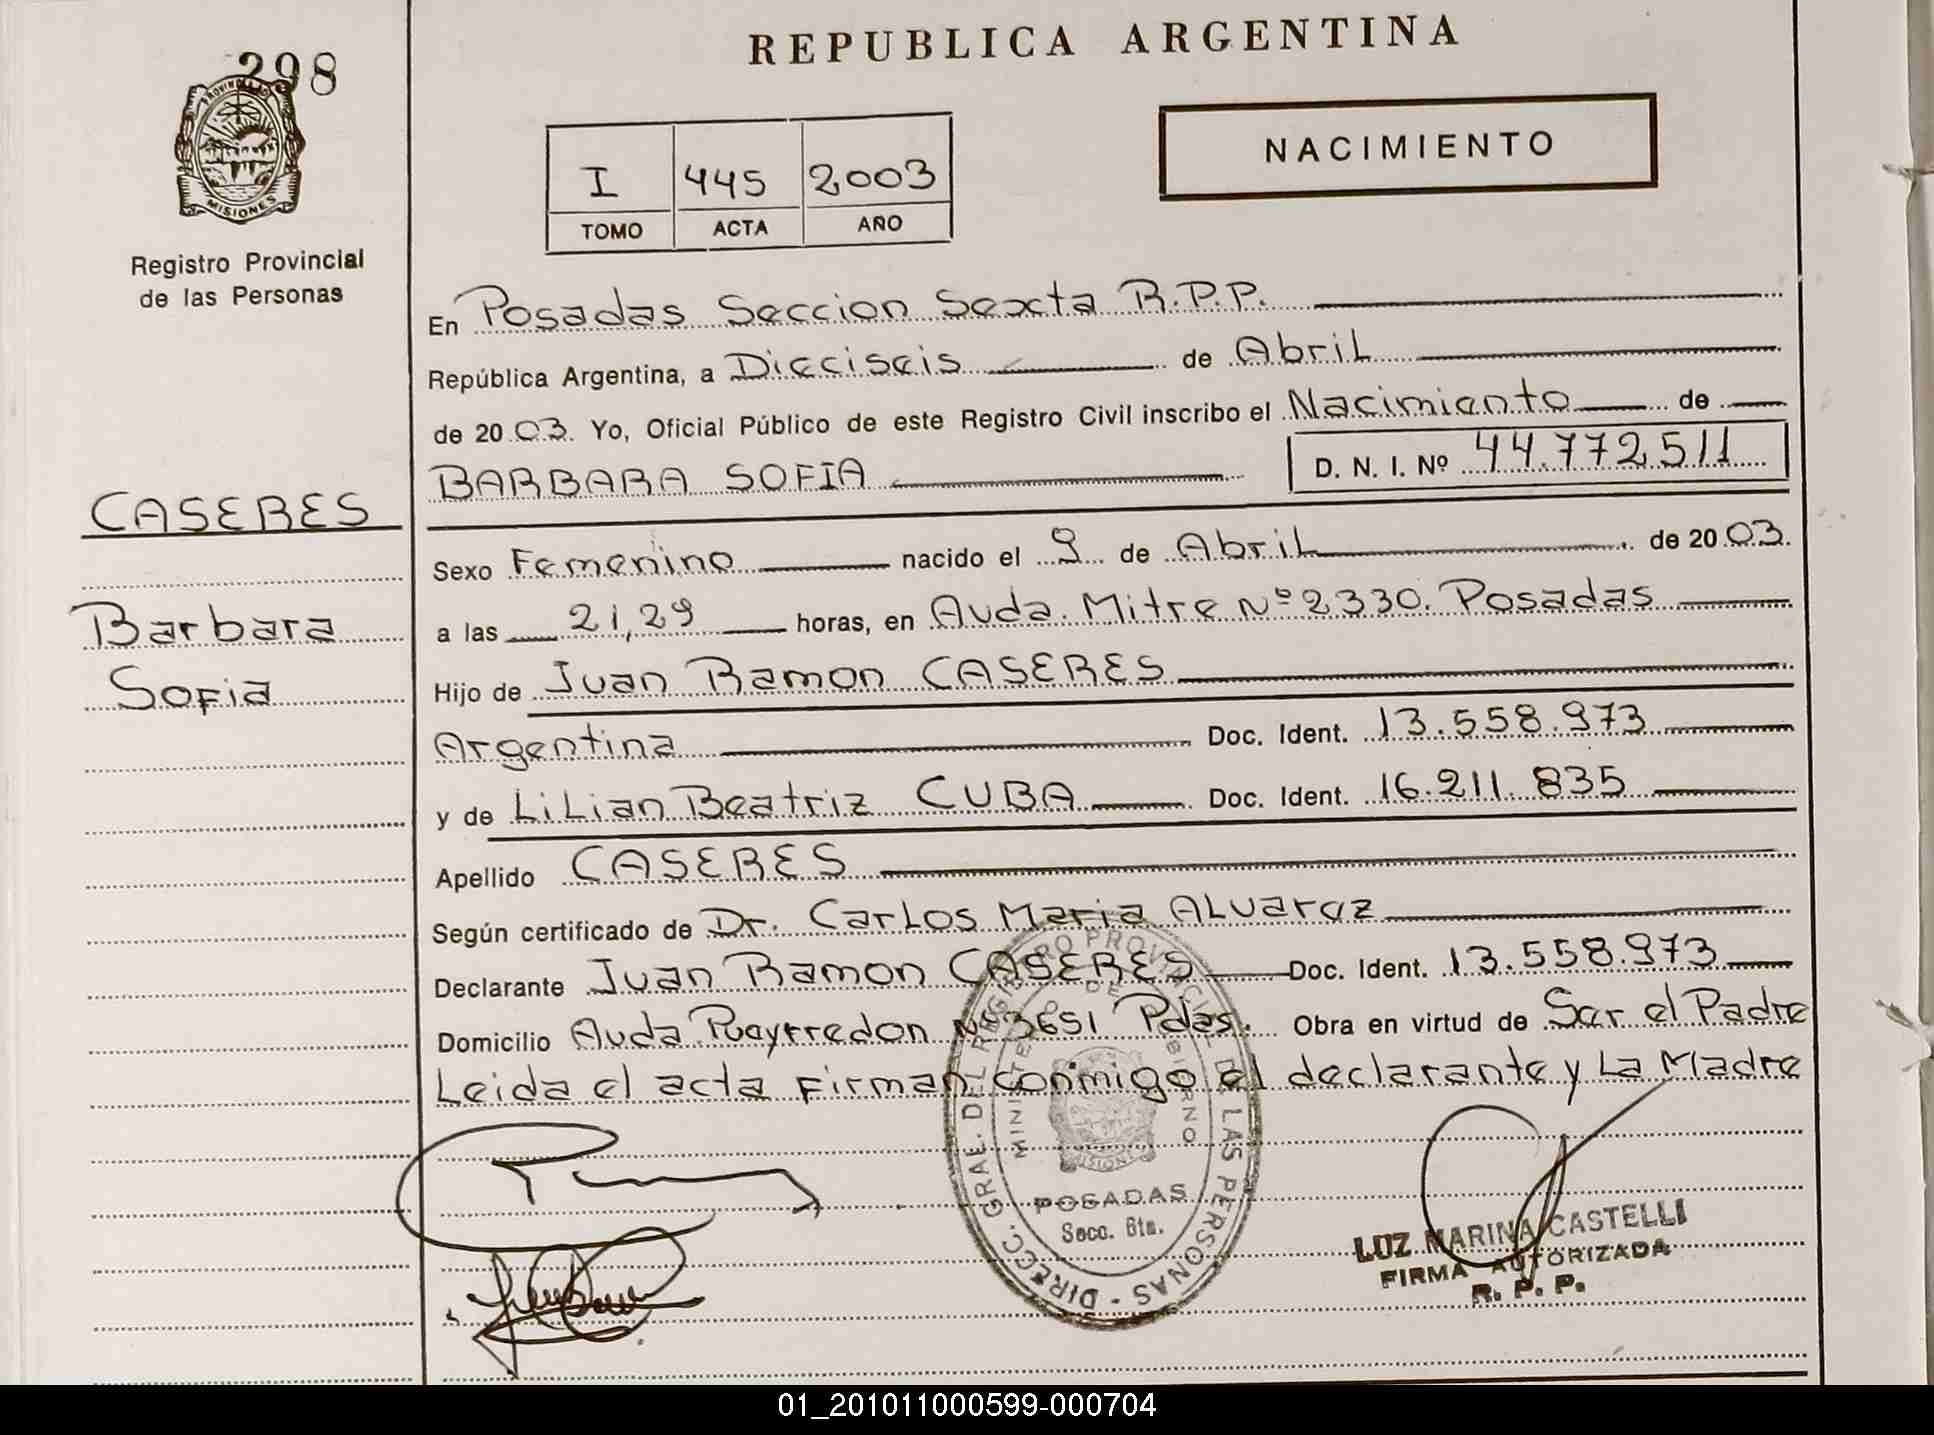 298
REPUBLICA ARGENTINA
PROVINCIA DE
MISIONES
Registro Provincial
de las Personas
I 445 2003
TOMO ACTA AÑO
NACIMIENTO
En Posadas Seccion Sexta R.P.P.
República Argentina, a Dieciseis de Abril
de 2003. Yo, Oficial Público de este Registro Civil inscribo el Nacimiento de
BARBARA SOFIA D. N. I. Nº 44.772511
CASERES
Barbara
Sofia
Sexo Femenino nacido el 9 de Abril de 2003.
a las 21,29 horas, en Avda. Mitre Nº 2330. Posadas
Hijo de Juan Ramon CASERES
Argentina Doc. Ident. 13.558.973
y de Lilian Beatriz CUBA Doc. Ident. 16.211.835
Apellido CASERES
Según certificado de Dr. Carlos Maria Alvarez
Declarante Juan Ramon CASERES Doc. Ident. 13.558.973
Domicilio Avda. Pueyrredon Nº 3651 Pdas. Obra en virtud de Ser el Padre
Leida el acta Firman conmigo el declarante y La Madre
DIRECC. GRAL. DEL REGISTRO PROVINCIAL DE LAS PERSONAS -
MINISTERIO DE GOBIERNO
MISIONES
POSADAS
Secc. 6ta.
LUZ MARINA CASTELLI
FIRMA AUTORIZADA
R. P. P.
01_201011000599-000704